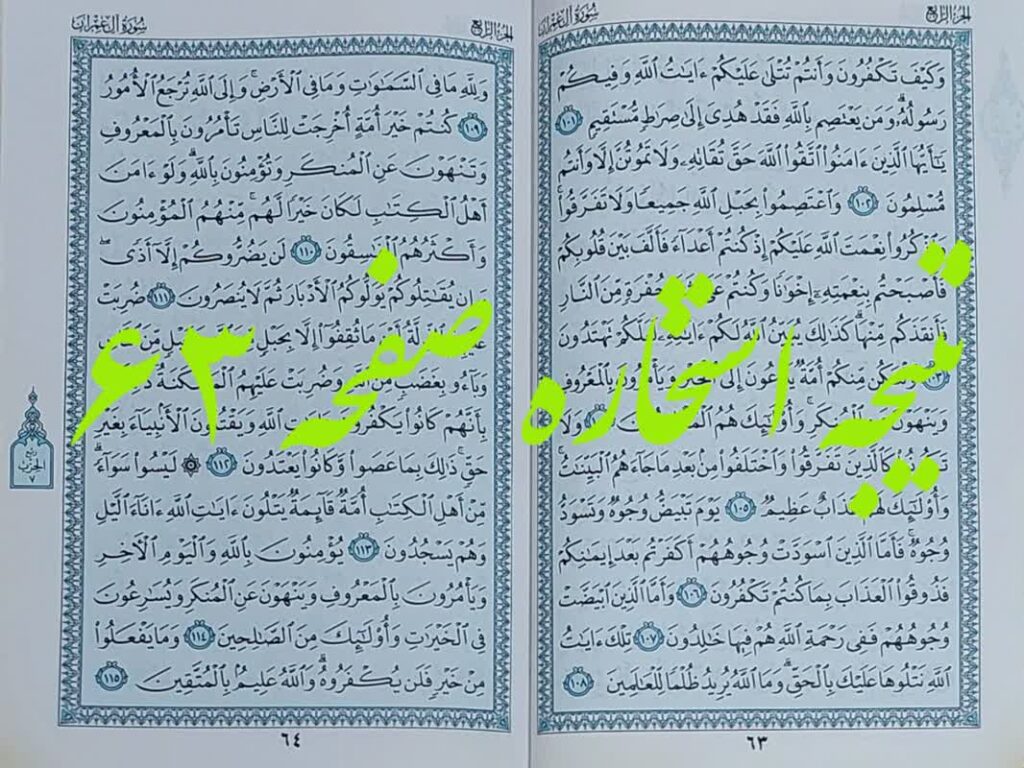 الجزء الرابع
سورة آل عمران
وَكَيْفَ تَكْفُرُونَ وَأَنتُمْ تُتْلَىٰ عَلَيْكُمْ ءَايَٰتُ ٱللَّهِ وَفِيكُمْ
رَسُولُهُۥ وَمَن يَعْتَصِم بِٱللَّهِ فَقَدْ هُدِىَ إِلَىٰ صِرَٰطٍ مُّسْتَقِيمٍ ١٠١
يَٰٓأَيُّهَا ٱلَّذِينَ ءَامَنُوا۟ ٱتَّقُوا۟ ٱللَّهَ حَقَّ تُقَاتِهِۦ وَلَا تَمُوتُنَّ إِلَّا وَأَنتُم
مُّسْلِمُونَ ١٠٢ وَٱعْتَصِمُوا۟ بِحَبْلِ ٱللَّهِ جَمِيعًا وَلَا تَفَرَّقُوا۟
وَٱذْكُرُوا۟ نِعْمَتَ ٱللَّهِ عَلَيْكُمْ إِذْ كُنتُمْ أَعْدَآءً فَأَلَّفَ بَيْنَ قُلُوبِكُمْ
فَأَصْبَحْتُم بِنِعْمَتِهِۦٓ إِخْوَٰنًا وَكُنتُمْ عَلَىٰ شَفَا حُفْرَةٍ مِّنَ ٱلنَّارِ
فَأَنقَذَكُم مِّنْهَا كَذَٰلِكَ يُبَيِّنُ ٱللَّهُ لَكُمْ ءَايَٰتِهِۦ لَعَلَّكُمْ تَهْتَدُونَ
١٠٣ وَلْتَكُن مِّنكُمْ أُمَّةٌ يَدْعُونَ إِلَى ٱلْخَيْرِ وَيَأْمُرُونَ بِٱلْمَعْرُوفِ
وَيَنْهَوْنَ عَنِ ٱلْمُنكَرِ وَأُو۟لَٰٓئِكَ هُمُ ٱلْمُفْلِحُونَ ١٠٤ وَلَا
تَكُونُوا۟ كَٱلَّذِينَ تَفَرَّقُوا۟ وَٱخْتَلَفُوا۟ مِنۢ بَعْدِ مَا جَآءَهُمُ ٱلْبَيِّنَٰتُ
وَأُو۟لَٰٓئِكَ لَهُمْ عَذَابٌ عَظِيمٌ ١٠٥ يَوْمَ تَبْيَضُّ وُجُوهٌ وَتَسْوَدُّ
وُجُوهٌ فَأَمَّا ٱلَّذِينَ ٱسْوَدَّتْ وُجُوهُهُمْ أَكَفَرْتُم بَعْدَ إِيمَٰنِكُمْ
فَذُوقُوا۟ ٱلْعَذَابَ بِمَا كُنتُمْ تَكْفُرُونَ ١٠٦ وَأَمَّا ٱلَّذِينَ ٱبْيَضَّتْ
وُجُوهُهُمْ فَفِى رَحْمَةِ ٱللَّهِ هُمْ فِيهَا خَٰلِدُونَ ١٠٧ تِلْكَ ءَايَٰتُ
ٱللَّهِ نَتْلُوهَا عَلَيْكَ بِٱلْحَقِّ وَمَا ٱللَّهُ يُرِيدُ ظُلْمًا لِّلْعَٰلَمِينَ ١٠٨
٦٣
الجزء الرابع
سورة آل عمران
وَلِلَّهِ مَا فِى ٱلسَّمَٰوَٰتِ وَمَا فِى ٱلْأَرْضِ وَإِلَى ٱللَّهِ تُرْجَعُ ٱلْأُمُورُ
١٠٩ كُنتُمْ خَيْرَ أُمَّةٍ أُخْرِجَتْ لِلنَّاسِ تَأْمُرُونَ بِٱلْمَعْرُوفِ
وَتَنْهَوْنَ عَنِ ٱلْمُنكَرِ وَتُؤْمِنُونَ بِٱللَّهِ وَلَوْ ءَامَنَ
أَهْلُ ٱلْكِتَٰبِ لَكَانَ خَيْرًا لَّهُم مِّنْهُمُ ٱلْمُؤْمِنُونَ
وَأَكْثَرُهُمُ ٱلْفَٰسِقُونَ ١١٠ لَن يَضُرُّوكُمْ إِلَّآ أَذًى
وَإِن يُقَٰتِلُوكُمْ يُوَلُّوكُمُ ٱلْأَدْبَارَ ثُمَّ لَا يُنصَرُونَ ١١١ ضُرِبَتْ
عَلَيْهِمُ ٱلذِّلَّةُ أَيْنَ مَا ثُقِفُوٓا۟ إِلَّا بِحَبْلٍ مِّنَ ٱللَّهِ وَحَبْلٍ مِّنَ ٱلنَّاسِ
وَبَآءُو بِغَضَبٍ مِّنَ ٱللَّهِ وَضُرِبَتْ عَلَيْهِمُ ٱلْمَسْكَنَةُ ذَٰلِكَ
بِأَنَّهُمْ كَانُوا۟ يَكْفُرُونَ بِـَٔايَٰتِ ٱللَّهِ وَيَقْتُلُونَ ٱلْأَنۢبِيَآءَ بِغَيْرِ
حَقٍّ ذَٰلِكَ بِمَا عَصَوا۟ وَّكَانُوا۟ يَعْتَدُونَ ١١٢ ۞ لَيْسُوا۟ سَوَآءً
مِّنْ أَهْلِ ٱلْكِتَٰبِ أُمَّةٌ قَآئِمَةٌ يَتْلُونَ ءَايَٰتِ ٱللَّهِ ءَانَآءَ ٱلَّيْلِ
وَهُمْ يَسْجُدُونَ ١١٣ يُؤْمِنُونَ بِٱللَّهِ وَٱلْيَوْمِ ٱلْءَاخِرِ
وَيَأْمُرُونَ بِٱلْمَعْرُوفِ وَيَنْهَوْنَ عَنِ ٱلْمُنكَرِ وَيُسَٰرِعُونَ
فِى ٱلْخَيْرَٰتِ وَأُو۟لَٰٓئِكَ مِنَ ٱلصَّٰلِحِينَ ١١٤ وَمَا يَفْعَلُوا۟
مِنْ خَيْرٍ فَلَن يُكْفَرُوهُ وَٱللَّهُ عَلِيمٌۢ بِٱلْمُتَّقِينَ ١١٥
٦٤
ربع
الحزب
٧
نتیجه استخاره صفحه ۶۳